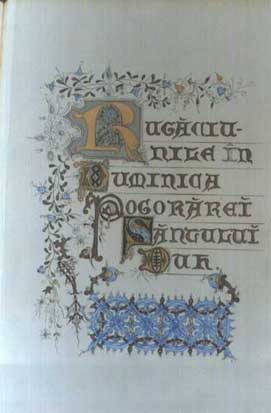 RUGĂCIU-
NILE ÎN
DUMINICA
POGORĂREĬ
SÂNTULUĬ
DUH